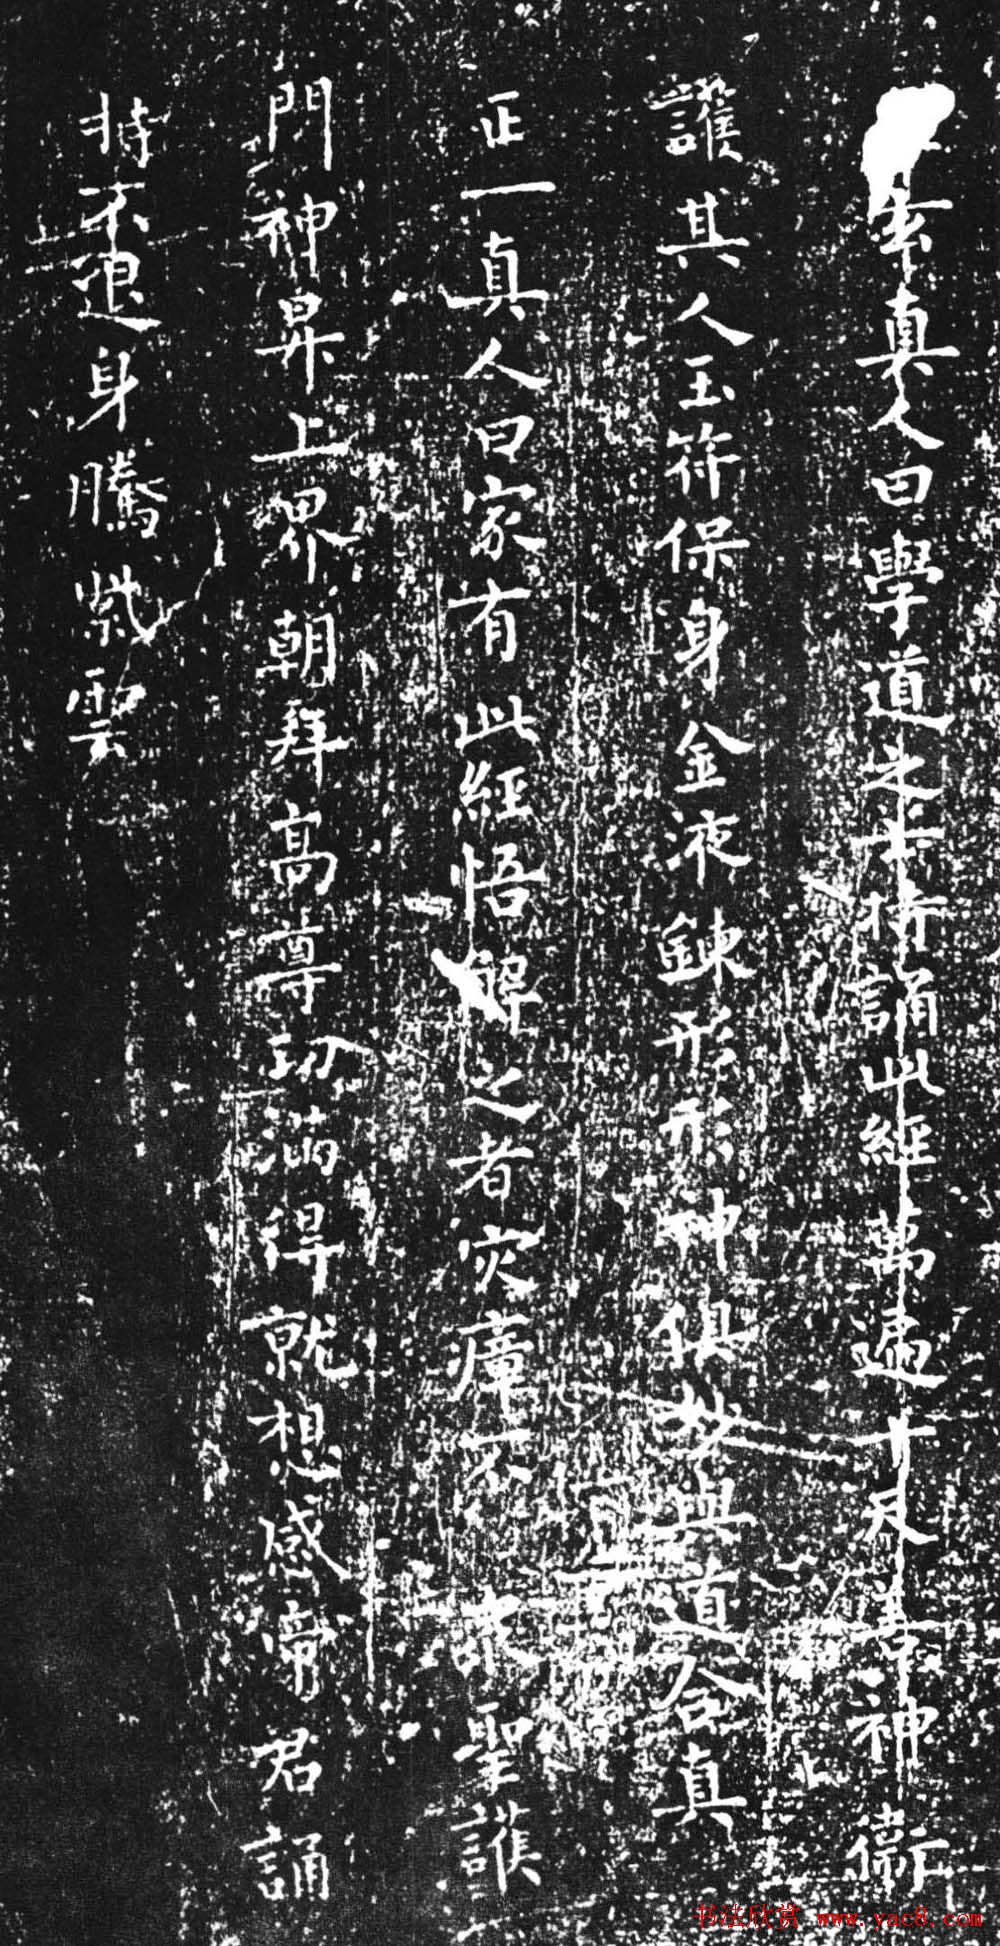 玄真人曰學道之士持誦此經萬遍十天善神衛
護其人玉符保身金液鍊形形神俱妙與道合真
正一真人曰家有此經悟解之者灾瘴不衆聖護
門神昇上界朝拜高尊功滿得就想感帝君誦
持不退身騰紫雲
书法欣赏 www.yac8.com